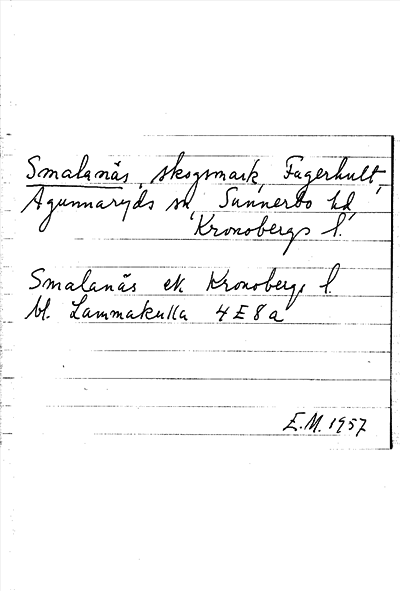 Smalanäs, skogsmark, Fagerhult,
Agunnaryds sn, Sunnerbo hd,
Kronobergs l.
Smalanäs ek Kronobergs l.
bl. Lammakulla 4E8a
E.M. 1957